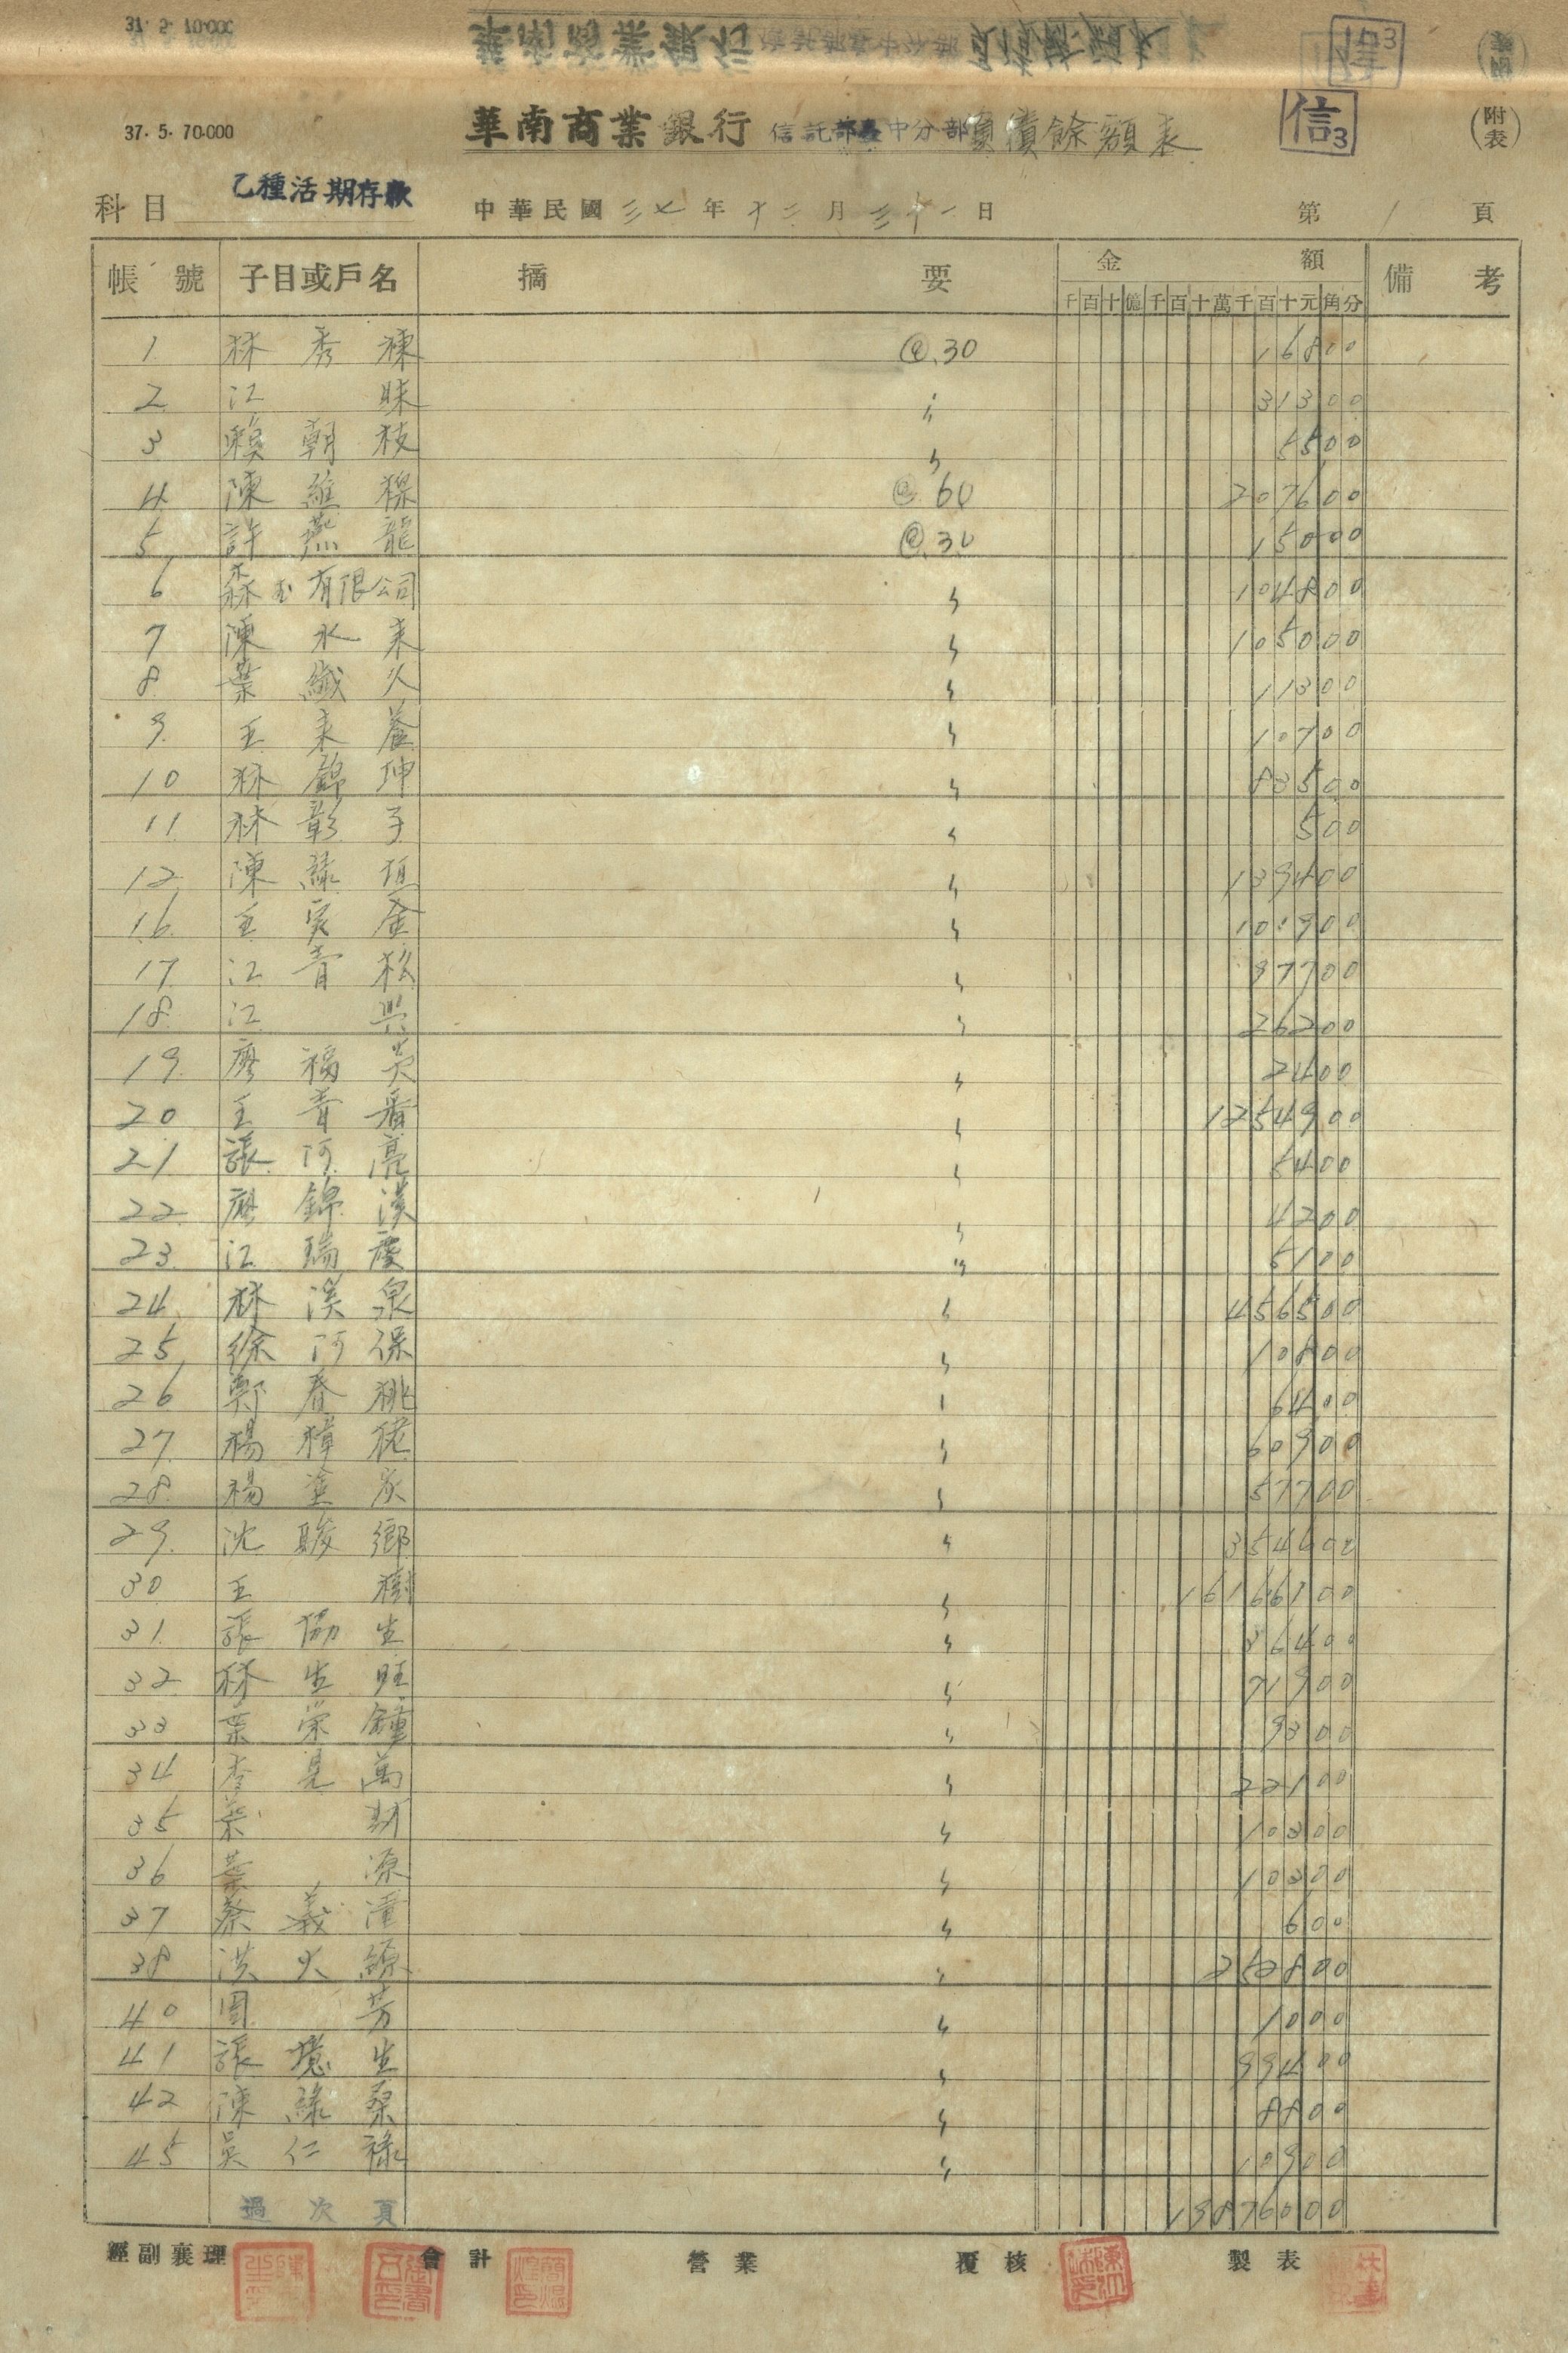 37. 5. 70.000
華南商業銀行 信託部臺中分部 負債餘額表
信3
(附表)
科目 乙種活期存款 中華民國三七年十二月三十一日 第 1 頁
帳號 子目或戶名 摘要 金額 備考
千百十億千百十萬千百十元角分
1 林秀 @.30 16800
2 江 〃 31300
3 賴朝枝 〃 5500
4 陳 @.60 207600
5 許燕龍 @.30 15000
6 森 有限公司 〃 104800
7 陳水來 〃 105000
8 葉 火 〃 11300
9 王來 〃 10700
10 林錦坤 〃 83500
11 林彰 〃 500
12 陳綠 〃 139400
16 王 金 〃 101900
17 江青松 〃 97700
18 江 〃 26200
19 廖福 〃 2400
20 王青番 〃 1254900
21 張阿亮 〃 5400
22 廖錦漢 〃 4200
23 江瑞慶 〃 5100
24 林溪泉 〃 456500
25 徐阿保 〃 10800
26 鄭春桃 〃 6400
27 楊樟 〃 60900
28 楊塗炭 〃 57700
29 沈駿鄉 〃 354400
30 王樹 〃 16166100
31 張協生 〃 36400
32 林生旺 〃 71900
33 葉榮鐘 〃 9300
34 李見萬 〃 22100
35 〃 10300
36 葉源 〃 10300
37 蔡義 〃 600
38 洪火 〃 250800
40 芳 〃 1000
41 張 生 〃 99400
42 陳綠桑 〃 8800
45 吳仁祿 〃 10900
過次頁 19876000
經副襄理 會計 營業 覆核 製表